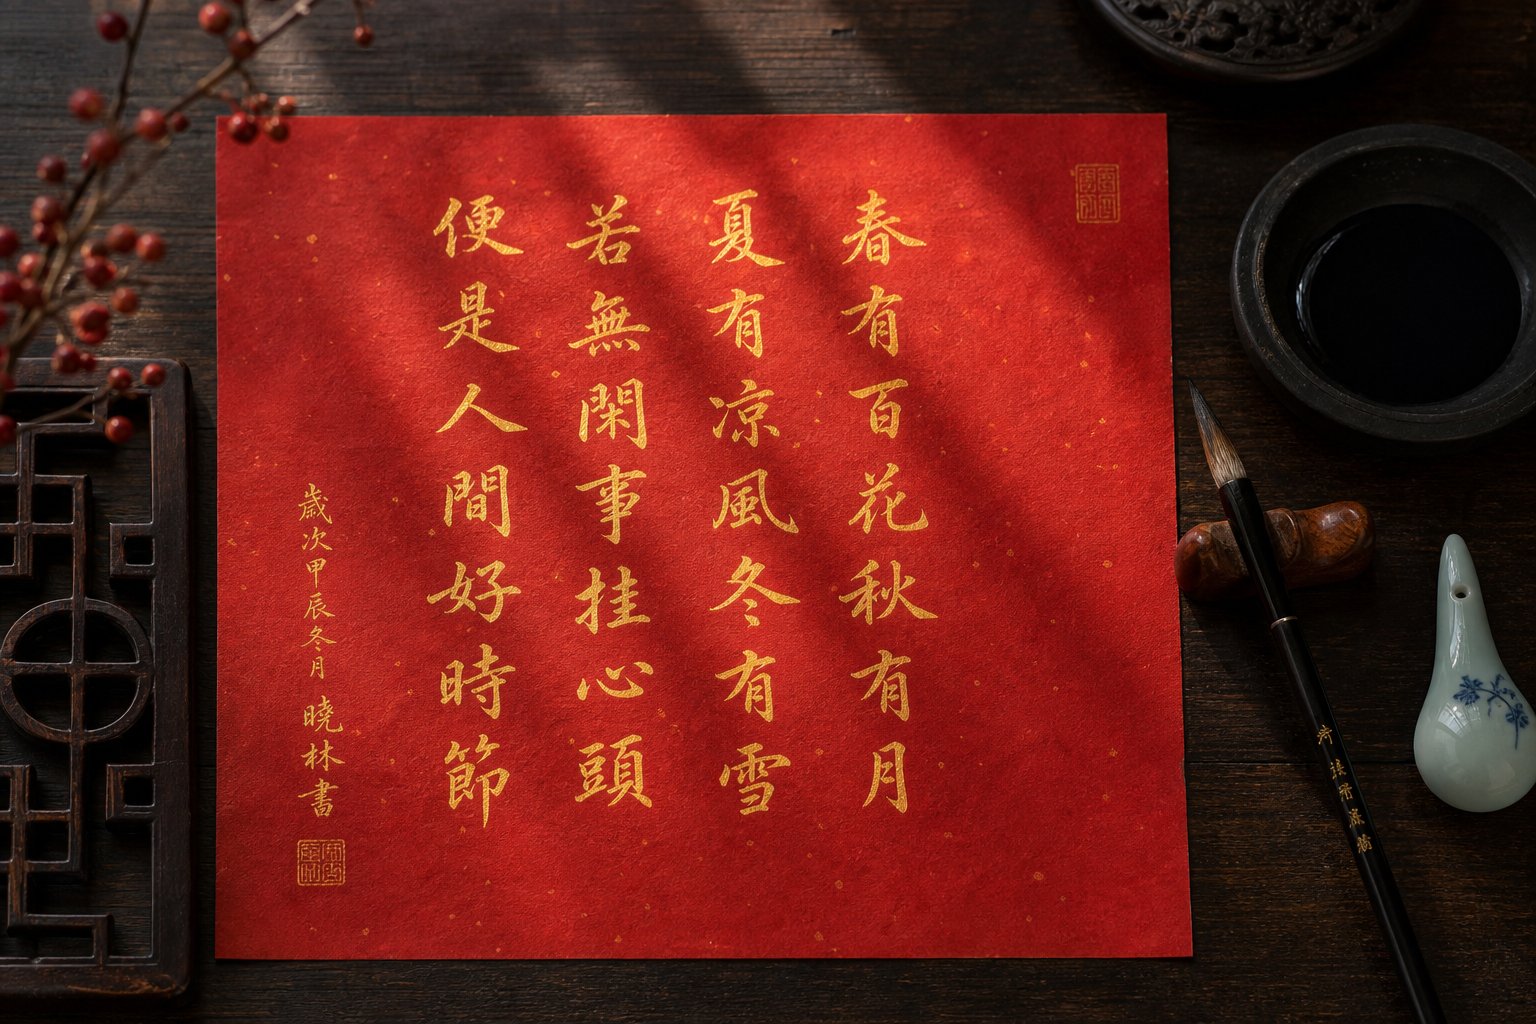 春有百花秋有月
夏有凉風冬有雪
若無閑事挂心頭
便是人間好時節
歲次甲辰冬月 曉林書